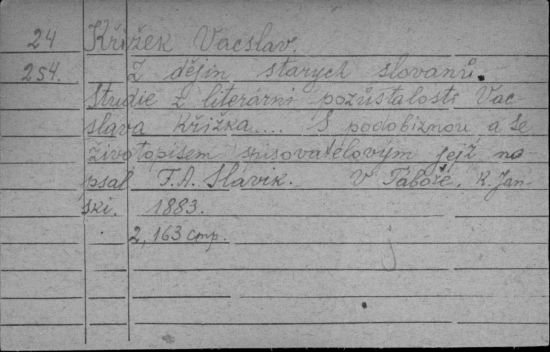 24 Křížek Vacslav.
254. Z dějin starych slovanů.
Studie z literárni pozůstalosti Vac-
slava Křížka.... S podobiznou a se
životopisem spisovatelovým jejž na-
psal F. A. Slavik. V Taboře, K. Jan-
ski. 1883.
2, 163 стр.